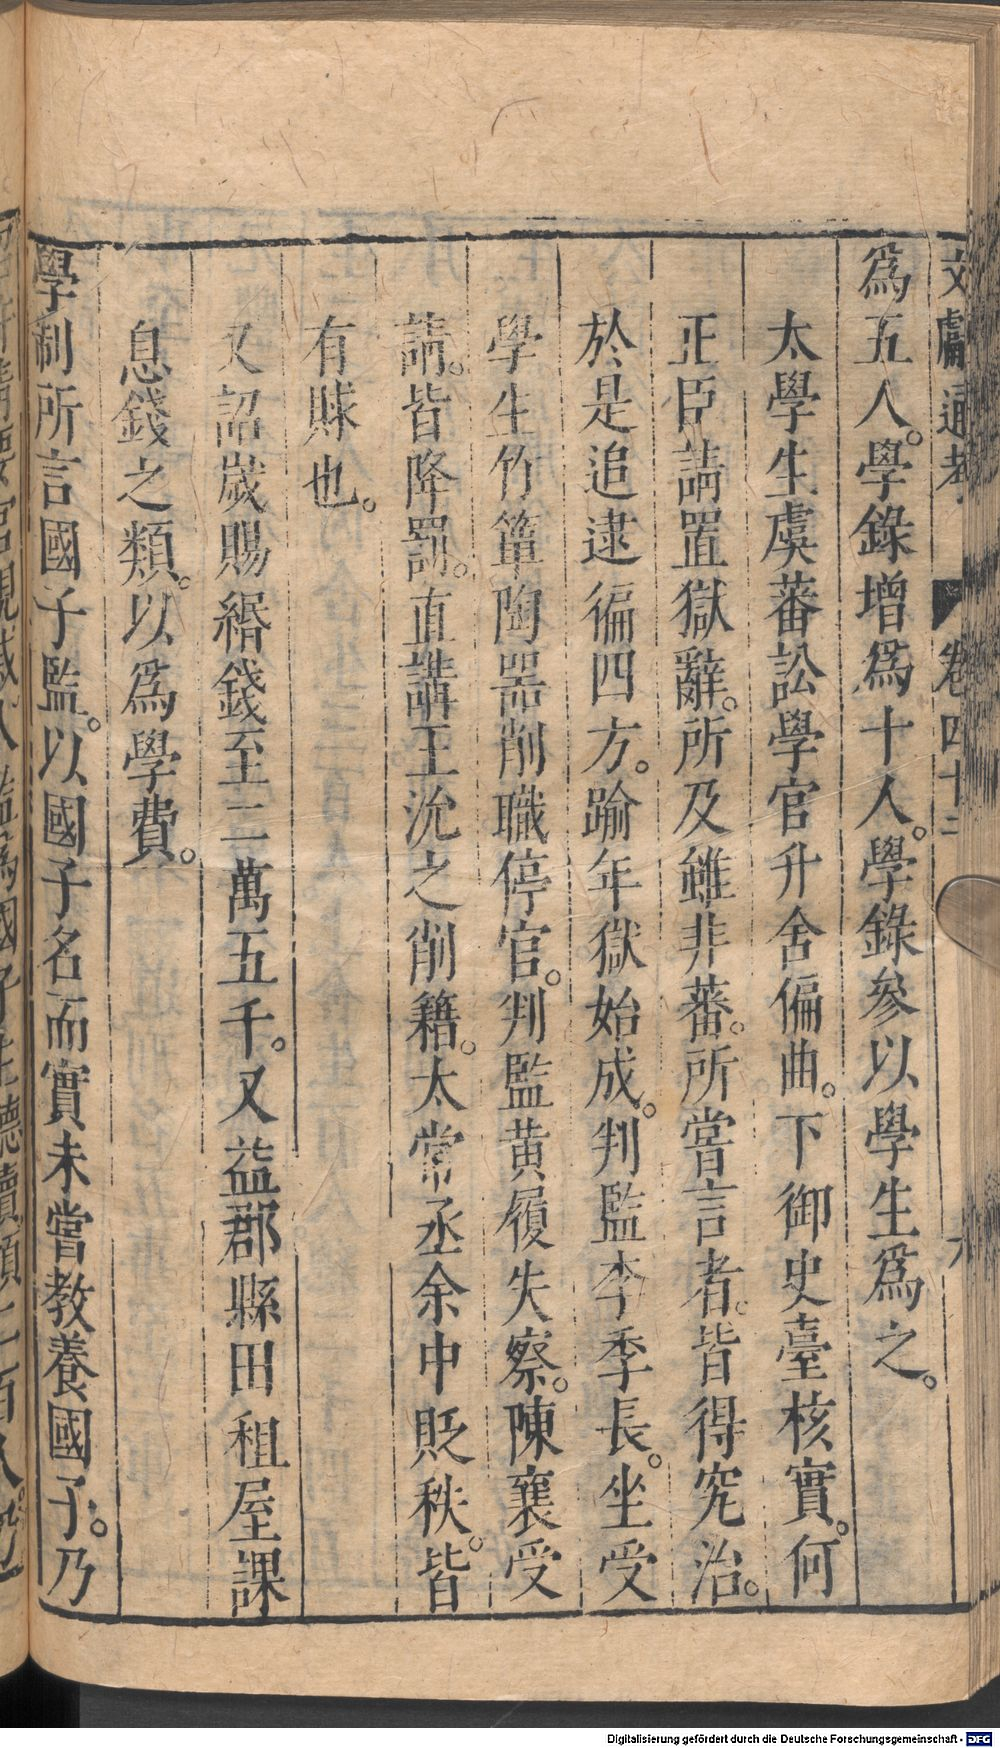 文獻通考 卷四十二 六
為五人。學錄增為十人。學錄參以學生為之。
太學生虞蕃訟學官升舍偏曲。下御史臺核實。何
正臣請置獄辭。所及雖非蕃。所嘗言者。皆得究治。
於是追逮徧四方。踰年獄始成。判監李季長。坐受
學生竹簟陶器削職停官。判監黃履失察。陳襄受
請。皆降罰。直講王沇之削籍。太常丞余中貶秩。皆
有賕也。
又詔歲賜緡錢至二萬五千。又益郡縣田租屋課
息錢之類。以為學費。
學制所言國子監。以國子名而實未嘗教養國子。乃
Digitalisierung gefördert durch die Deutsche Forschungsgemeinschaft - DFG